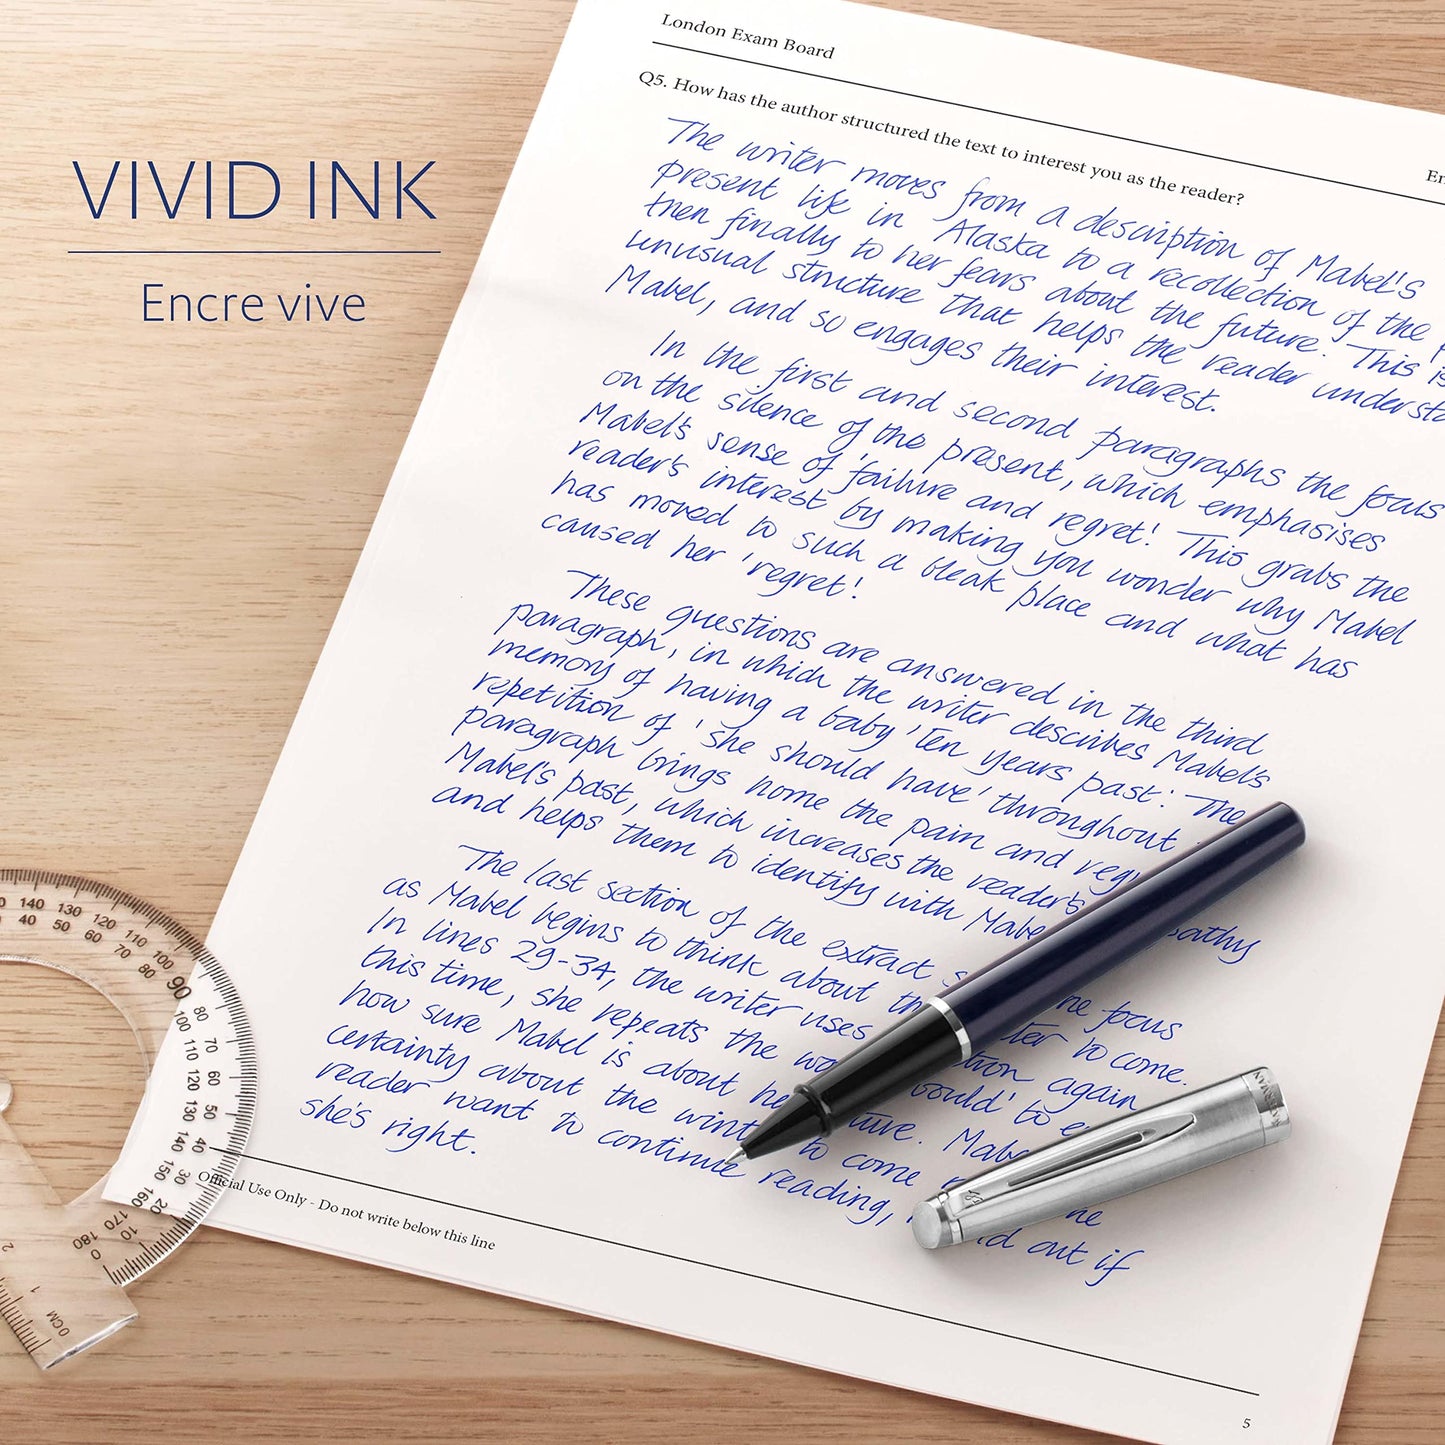 VIVID INK
Encre vive
London Exam Board
Q5. How has the author structured the text to interest you as the reader?
The writer moves from a description of Mabel's
present life in Alaska to a recollection of the
then finally to her fears about the future. This is
unusual structure that helps the reader
Mabel, and so engages their interest.
In the first and second paragraphs the focus
on the silence of the present, which emphasises
Mabel's sense of 'failure and regret'. This grabs the
reader's interest by making you wonder why Mabel
has moved to such a bleak place and what has
caused her 'regret'.
These questions are answered in the third
paragraph, in which the writer describes Mabel's
memory of having a baby 'ten years past'. The
repetition of 'she should have' throughout
paragraph brings home the pain and
Mabel's past, which increases the reader's
and helps them to identify with
The last section of the extract focus
as Mabel begins to think about to come.
In lines 29-34, the writer uses again
this time, she repeats the to
how sure Mabel is about
certainty about the to come
reader want to continue reading, out if
she's right.
Official Use Only - Do not write below this line
5
140 130 120 110 100 90 80 70 60 50 40 30 20 10 0
40 50 60 70 80 100 110 120 130 140 150 160 170 180
0CM 1 2